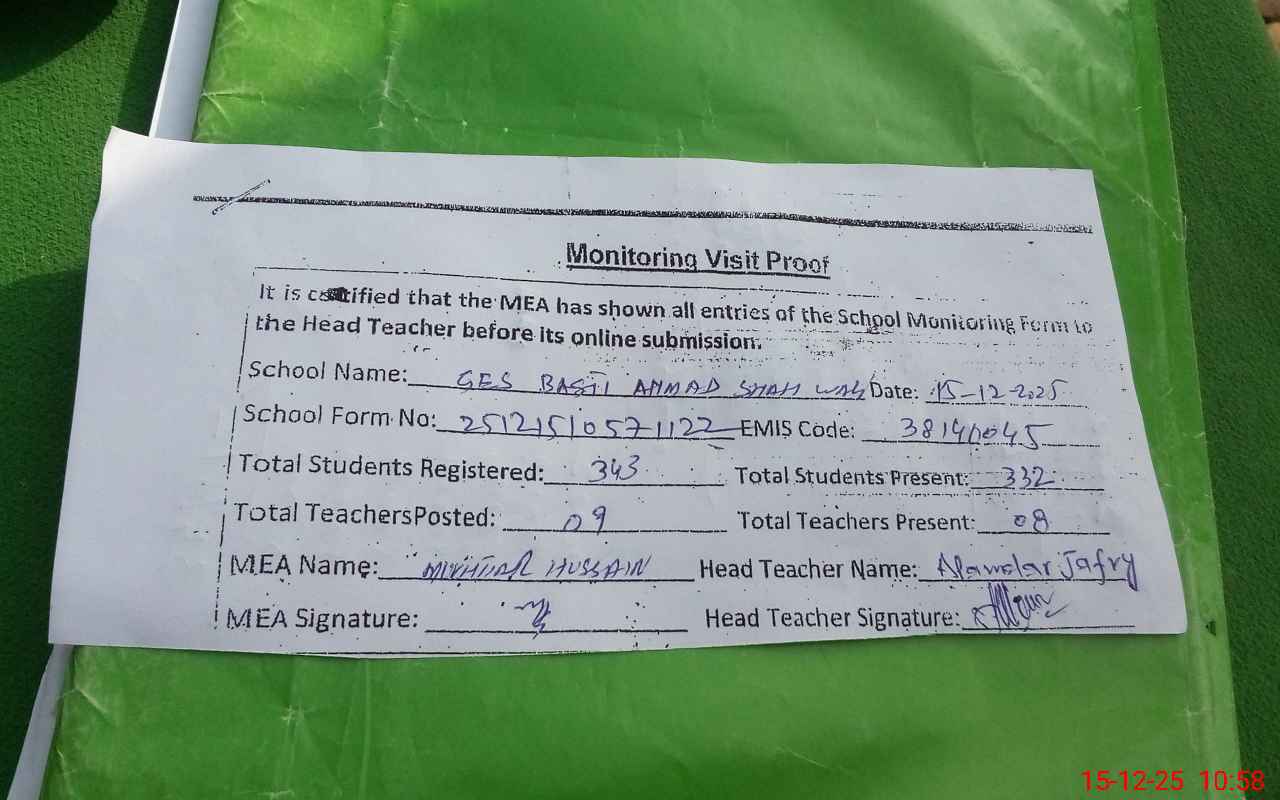 Monitoring Visit Proof
It is certified that the MEA has shown all entries of the School Monitoring Form to
the Head Teacher before its online submission.
School Name: GES BASTI AHMAD SHAH WALI Date: 15-12-2025
School Form No: 25121510571122 EMIS Code:
Total Students Registered: 343 Total Students Present: 332
Total TeachersPosted: 09 Total Teachers Present: 08
MEA Name: MUKHTIAR HUSSAIN Head Teacher Name: Alamdar Jafry
MEA Signature: Head Teacher Signature:
15-12-25 10:58